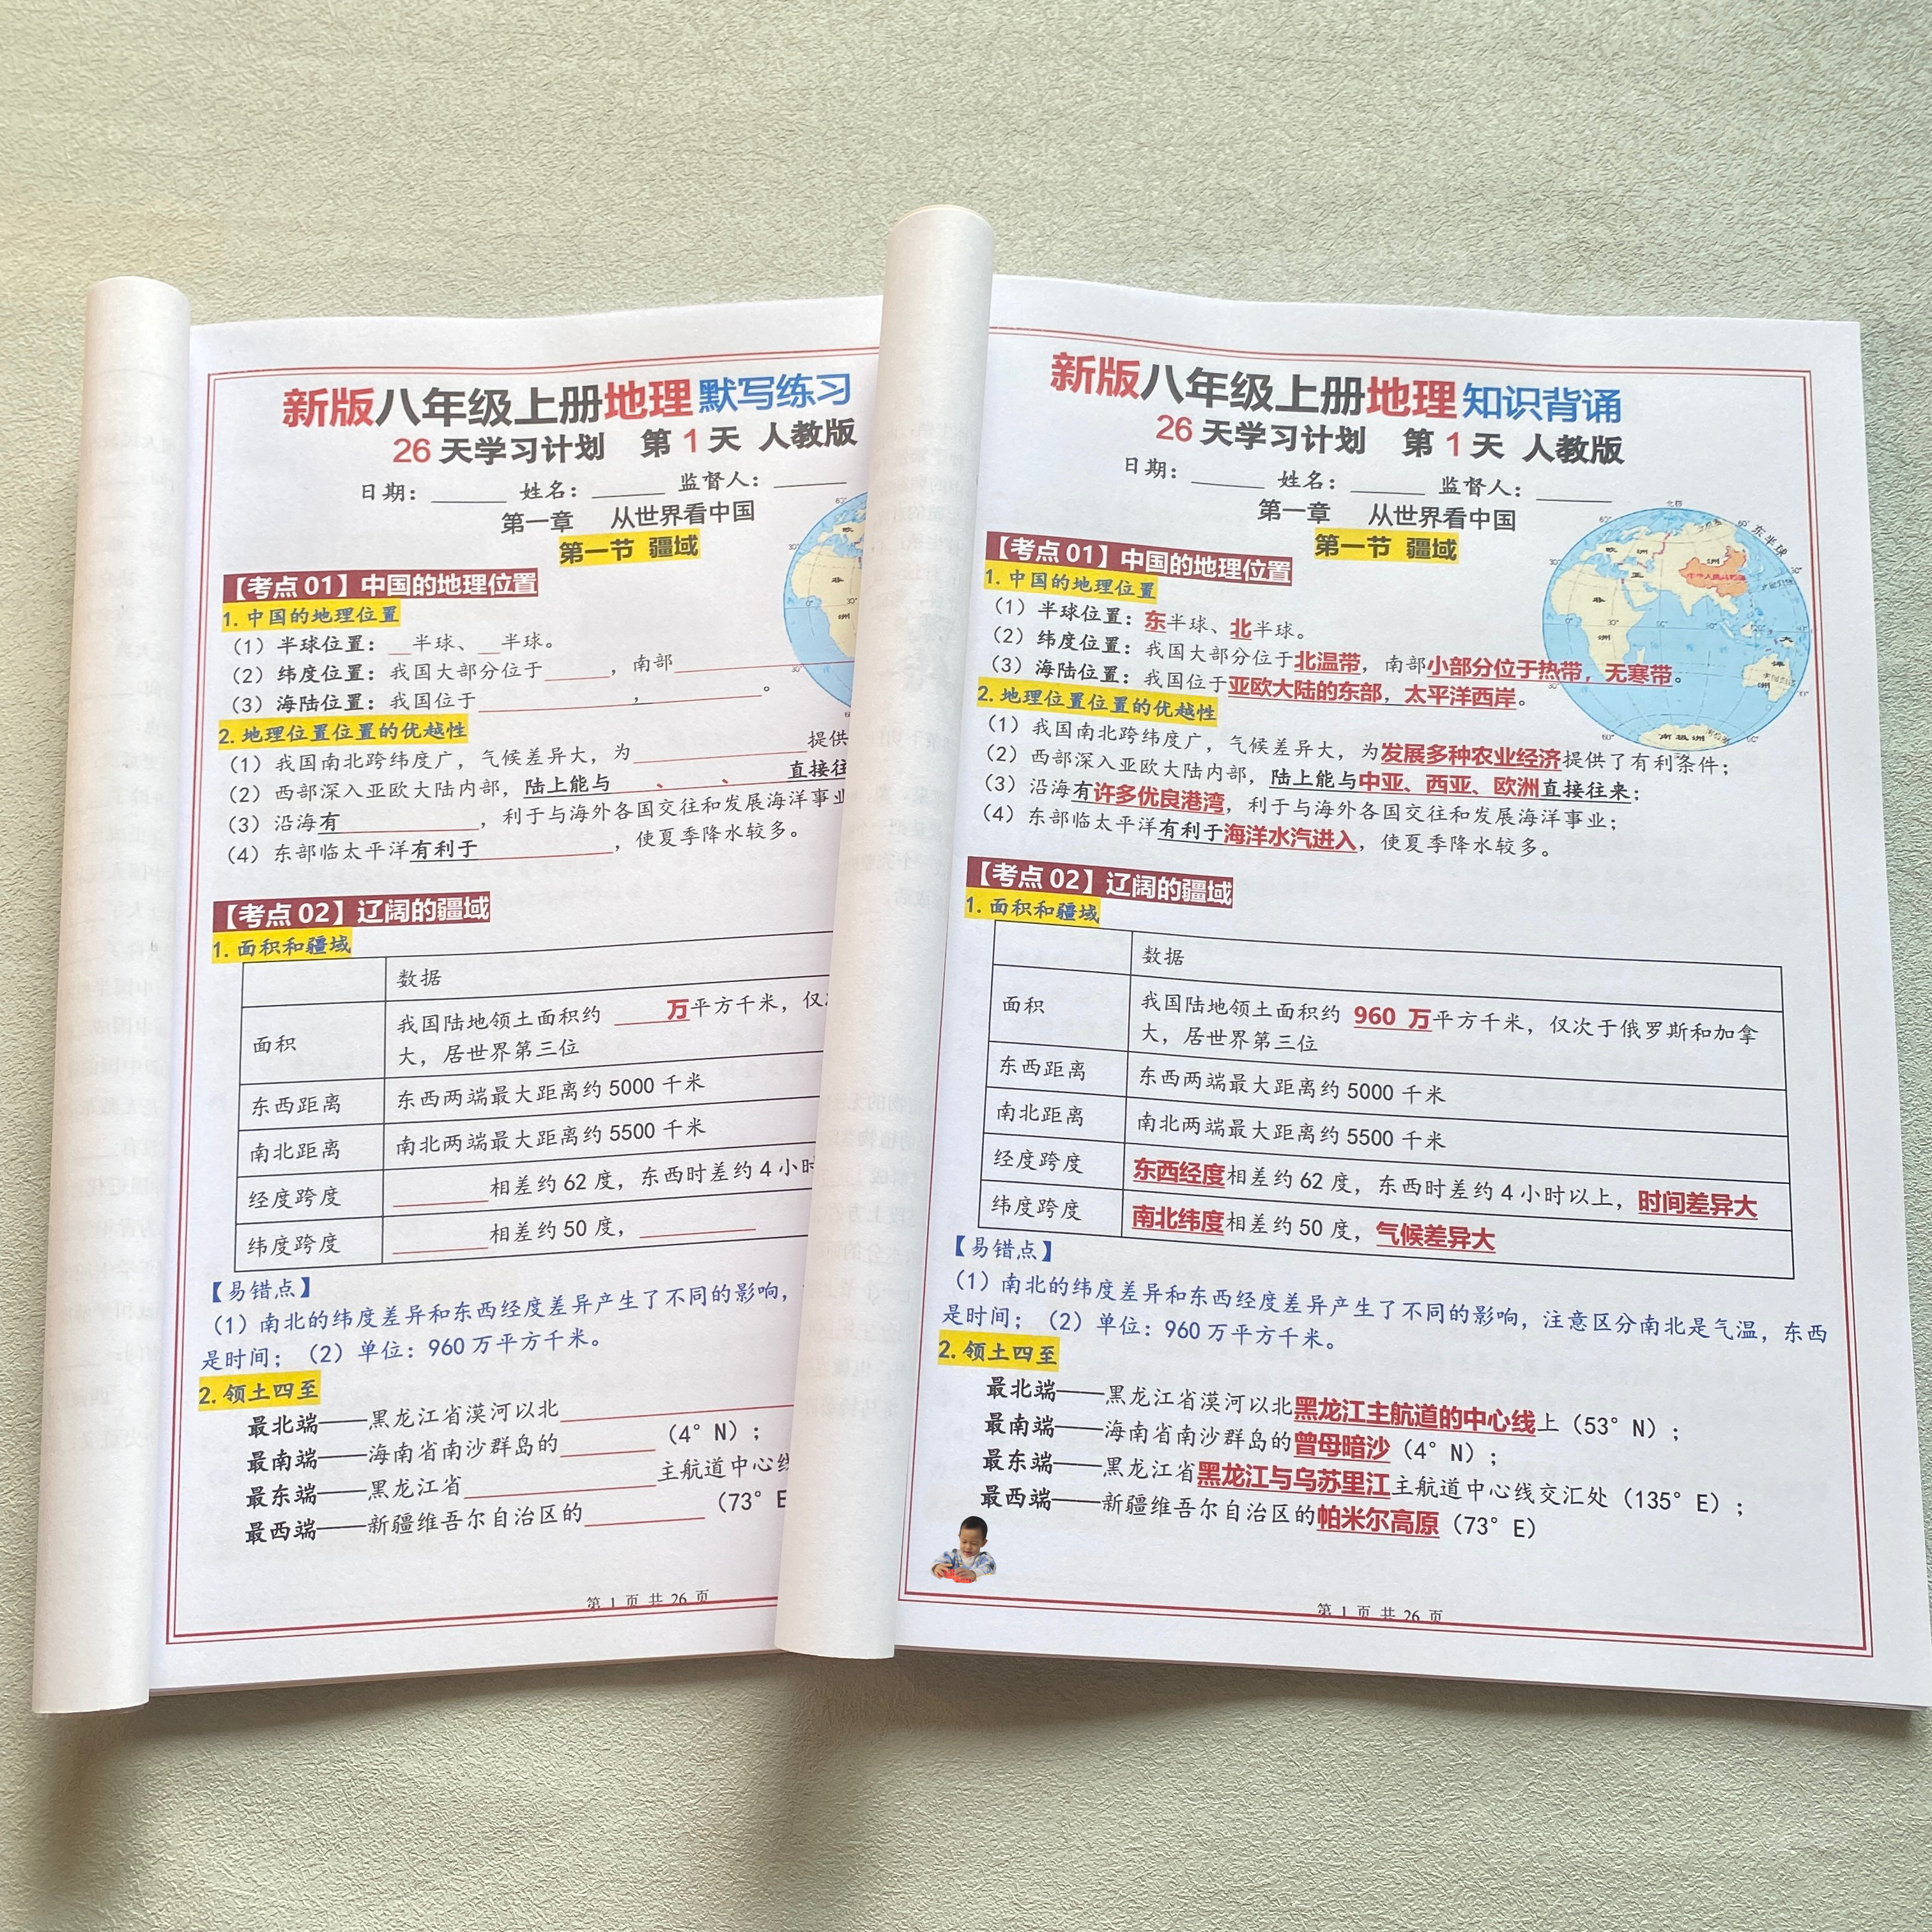 新版八年级上册地理 默写练习
26 天学习计划 第 1 天 人教版
日期：______ 姓名：______ 监督人：______
第一章 从世界看中国
第一节 疆域
【考点 01】中国的地理位置
1. 中国的地理位置
（1）半球位置：__半球、__半球。
（2）纬度位置：我国大部分位于_____，南部__________
（3）海陆位置：我国位于____________，__________。
2. 地理位置位置的优越性
（1）我国南北跨纬度广，气候差异大，为____________提供
（2）西部深入亚欧大陆内部，陆上能与____、____、____直接往
（3）沿海有__________，利于与海外各国交往和发展海洋事业
（4）东部临太平洋有利于__________，使夏季降水较多。
【考点 02】辽阔的疆域
1. 面积和疆域
数据
面积 我国陆地领土面积约 ____万平方千米，仅
大，居世界第三位
东西距离 东西两端最大距离约 5000 千米
南北距离 南北两端最大距离约 5500 千米
经度跨度 ________相差约 62 度，东西时差约 4 小时
纬度跨度 ________相差约 50 度，__________
【易错点】
（1）南北的纬度差异和东西经度差异产生了不同的影响，
是时间；（2）单位：960 万平方千米。
2. 领土四至
最北端——黑龙江省漠河以北____________________
最南端——海南省南沙群岛的________（4° N）；
最东端——黑龙江省________________主航道中心线
最西端——新疆维吾尔自治区的__________（73° E
第 1 页 共 26 页
新版八年级上册地理 知识背诵
26 天学习计划 第 1 天 人教版
日期：______ 姓名：______ 监督人：______
第一章 从世界看中国
第一节 疆域
【考点 01】中国的地理位置
1. 中国的地理位置
（1）半球位置：东半球、北半球。
（2）纬度位置：我国大部分位于北温带，南部小部分位于热带，无寒带。
（3）海陆位置：我国位于亚欧大陆的东部，太平洋西岸。
2. 地理位置位置的优越性
（1）我国南北跨纬度广，气候差异大，为发展多种农业经济提供了有利条件；
（2）西部深入亚欧大陆内部，陆上能与中亚、西亚、欧洲直接往来；
（3）沿海有许多优良港湾，利于与海外各国交往和发展海洋事业；
（4）东部临太平洋有利于海洋水汽进入，使夏季降水较多。
东半球
欧 洲
亚 洲
中华人民共和国
非
洲
大
洋
洲
南极洲
【考点 02】辽阔的疆域
1. 面积和疆域
数据
面积 我国陆地领土面积约 960 万平方千米，仅次于俄罗斯和加拿
大，居世界第三位
东西距离 东西两端最大距离约 5000 千米
南北距离 南北两端最大距离约 5500 千米
经度跨度 东西经度相差约 62 度，东西时差约 4 小时以上，时间差异大
纬度跨度 南北纬度相差约 50 度，气候差异大
【易错点】
（1）南北的纬度差异和东西经度差异产生了不同的影响，注意区分南北是气温，东西
是时间；（2）单位：960 万平方千米。
2. 领土四至
最北端——黑龙江省漠河以北黑龙江主航道的中心线上（53° N）；
最南端——海南省南沙群岛的曾母暗沙（4° N）；
最东端——黑龙江省黑龙江与乌苏里江主航道中心线交汇处（135° E）；
最西端——新疆维吾尔自治区的帕米尔高原（73° E）
第 1 页 共 26 页